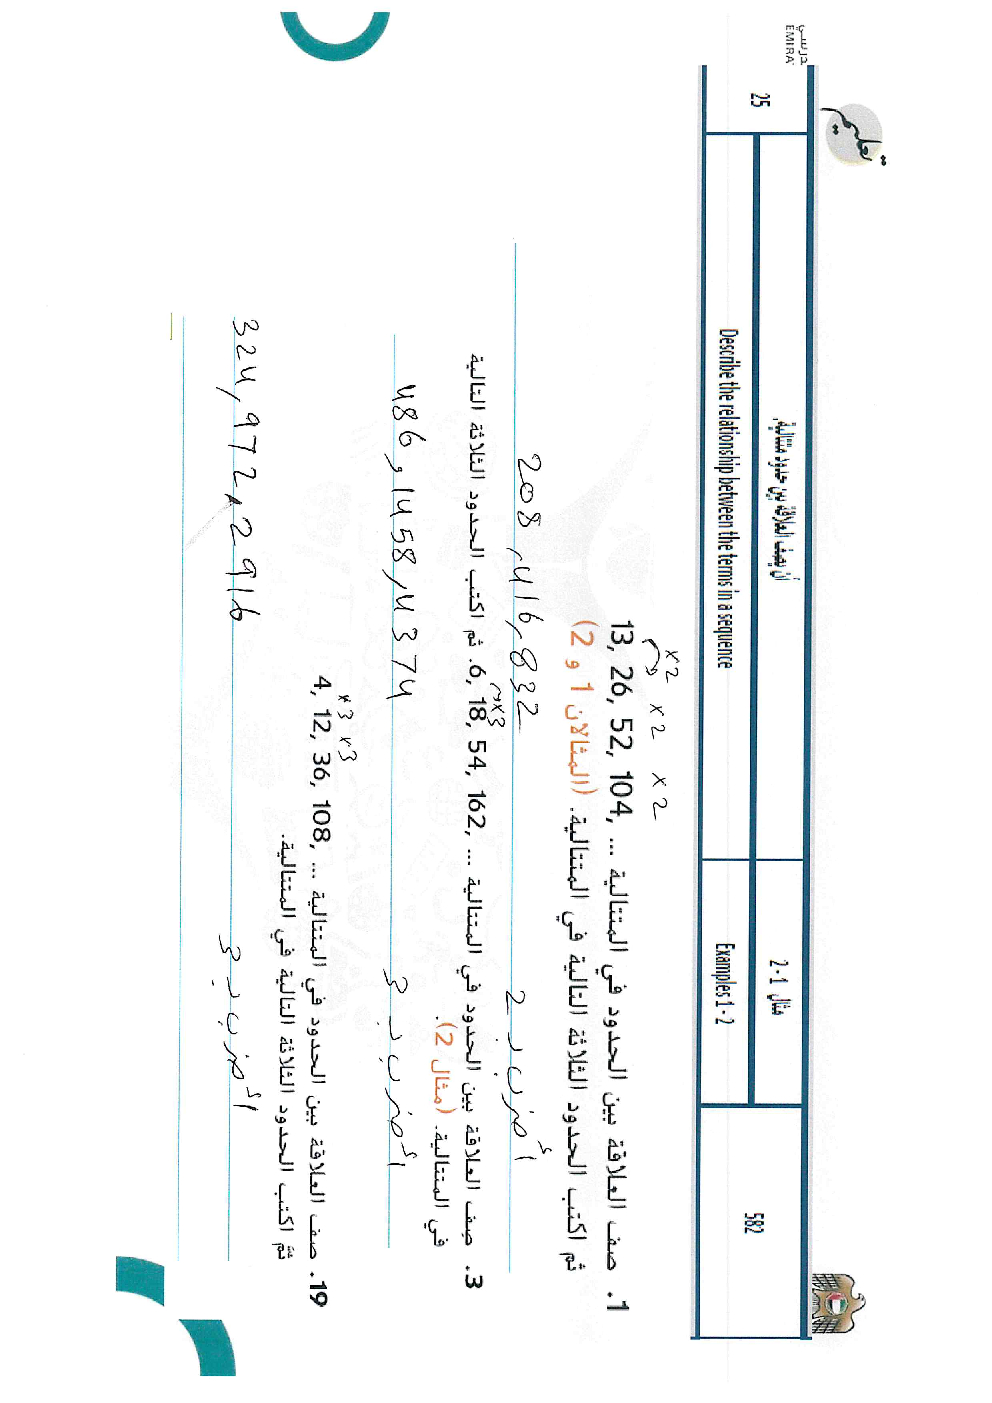 مدرسي
EMIRA
25
أن يصف العلاقة بين حدود متتالية.
Describe the relationship between the terms in a sequence
مثال 1-2
Examples 1 - 2
582
×2 ×2 ×2
1. صف العلاقة بين الحدود في المتتالية ... ,13, 26, 52, 104
ثم اكتب الحدود الثلاثة التالية في المتتالية. (المثالان 1 و 2)
208 , 416 , 832 أضرب بـ 2
×3
3. صف العلاقة بين الحدود في المتتالية ... ,6, 18, 54, 162. ثم اكتب الحدود الثلاثة التالية
في المتتالية. (مثال 2).
486 , 1458 , 4374 أضرب بـ 3
×3 ×3
19. صف العلاقة بين الحدود في المتتالية ... ,4, 12, 36, 108
ثمّ اكتب الحدود الثلاثة التالية في المتتالية.
324 , 972 , 2916 أضرب بـ 3